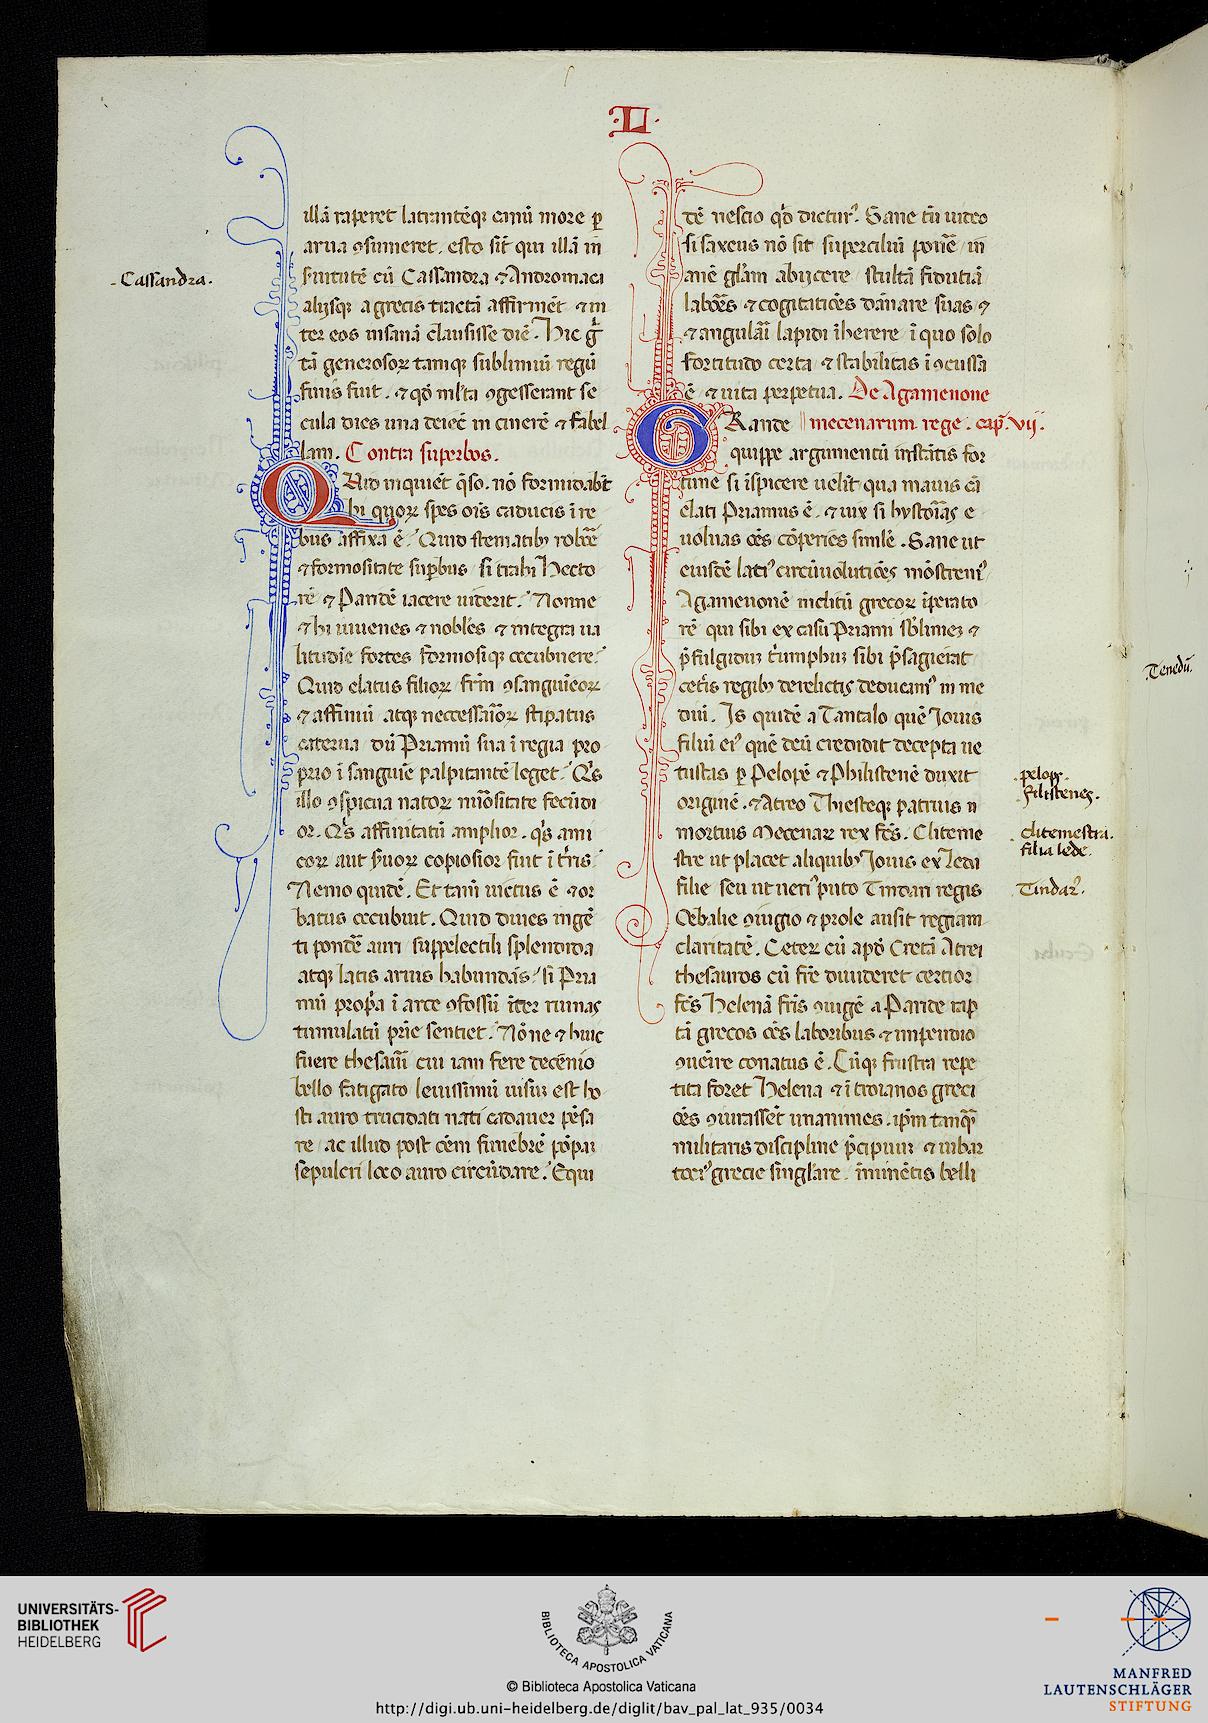 ·L·
illā raperet latrantēqꝫ canū more ꝑ
arua ꝯsumeret. esto sīt qui illā in
ẜuitutē cū Cassandra ⁊ Andromaca
alijsqꝫ a grecis tractā affirmēt ⁊ in
ter eos insanā clausisse diē. Hic gͬ
tā generosoꝝ tamqꝫ sublimiū regū
finis fuit. ⁊ qđ ml̄ta ꝯgesserant se
cula dies una deiec̄ in cinerē ⁊ fabel
lam. Contra superbos.
QUid inquiēt q̄so. nō formidabt̄
hi quoꝝ spes oīs caducis ī re
bus affixa ē. Quid stematibꝫ robore
⁊ formositate suꝑbus si trahi Hecto
rē ⁊ Paridē iacere uiderit. Nonne
⁊ hi iuuenes ⁊ nobiles ⁊ integra ua
litudīe fortes formosiqꝫ occubuere.
Quid elatus filioꝝ frm̄ ꝯsanguīeoꝝ
⁊ affiniū atqꝫ neccessarioꝝ stipatus
caterua dū Priamū sua ī regia pro
prio ī sanguīe palpitantē leget. Qͥs
illo ꝯspicua natoꝝ nūositate fecūdi
or. Qͥs affinitatū amplior. qͥs ami
coꝝ aut ẜuoꝝ copiosior fuit ī terris.
Nemo quidē. Et tam̄ uictus ē ⁊ or
batus occubuit. Quid diues ingē
ti pondē auri suppelectili splendida
atqꝫ latis aruis habundās, si Pria
mū propͥa ī arce ꝯfossū īter ruinas
tumulatū prīe sentiet. Nōne ⁊ huic
fuere thesauri cui iam fere decēnio
bello fatigato leuissimū uisuꝫ est ho
sti auro trucidati nati cadauer pēsa
re, ac illud post oēm funebrē pōpaꝫ
sepulcri loco auro circūdare. Equi
dē nescio qđ dictur̉. Sane tn̄ uideo
si saxeus nō sit superciliū ponē in
anē gl̄am abijcere stultā fiduciā
labōes ⁊ cogitatiōes dānare suas ⁊
⁊ angulāi lapidi īherere ī quo solo
fortitudo certa ⁊ stabilitas īꝯcussa
ē ⁊ uita perpetua. De Agamenone
GRande mecenarum rege. cap̄. vij.
quippe argumentū instātis for
tune si īspicere uelīt qua mauis eā
elati Priamus ē. ⁊ uix si hystorias e
uoluas oēs cōperies similē. Sane ut
eiusdē lati circūuolutiōes mōstrem̉
Agamenonē inclitū grecoꝝ īperato
rē qui sibi ex casu Priami sb̄limeꝫ ⁊
p̄fulgiduꝫ triumphuꝫ sibi p̄sagierat
cetīs regibꝫ derelictis deducam̉ in me
diū. Is quidē a Tantalo quē Jouis
filiū eỉ quē deū credidit decepta ue
tustas ꝑ Pelopē ⁊ Philistenē duxit
originē. ⁊ Atreo Thiesteqꝫ patruis n
mortuis Mecenaꝝ rex fc̄s. Cliteme
stre ut placet aliquibꝫ Jouis ex Leda
filie seu ut uerỉ puto Tindari regis
Oebalie ꝯiugio ⁊ prole ausit regiam
claritatē. Ceteꝝ cū apđ Cretā Atrei
thesauros cū fr̄e diuideret certior
fc̄s Helenā fris ꝯiugē a Paride rap
tā grecos oēs laboribus ⁊ impendio
ꝯuēire conatus ē. Cūqꝫ frustra repe
tita foret Helena ⁊ ī troianos greci
oēs ꝯiurassēt unanimes. ip̄m tanqꝫ
militaris discipline p̄cipuuꝫ ⁊ iubar
tocỉ grecie singl̄are. īminētis belli
·Cassandra·
·pelops·
·filistenes·
·clitemestra.
filia lede·
·Tindar̉·
·Tenedū·
UNIVERSITÄTS-
BIBLIOTHEK
HEIDELBERG
BIBLIOTECA APOSTOLICA VATICANA
© Biblioteca Apostolica Vaticana
http://digi.ub.uni-heidelberg.de/diglit/bav_pal_lat_935/0034
MANFRED
LAUTENSCHLÄGER
STIFTUNG